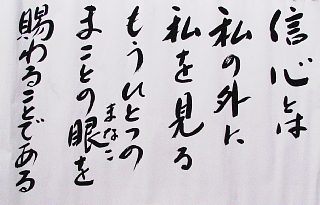 信心とは
私の外に
私を見る
もうひとつの
まことの眼を
まなこ
賜わることである